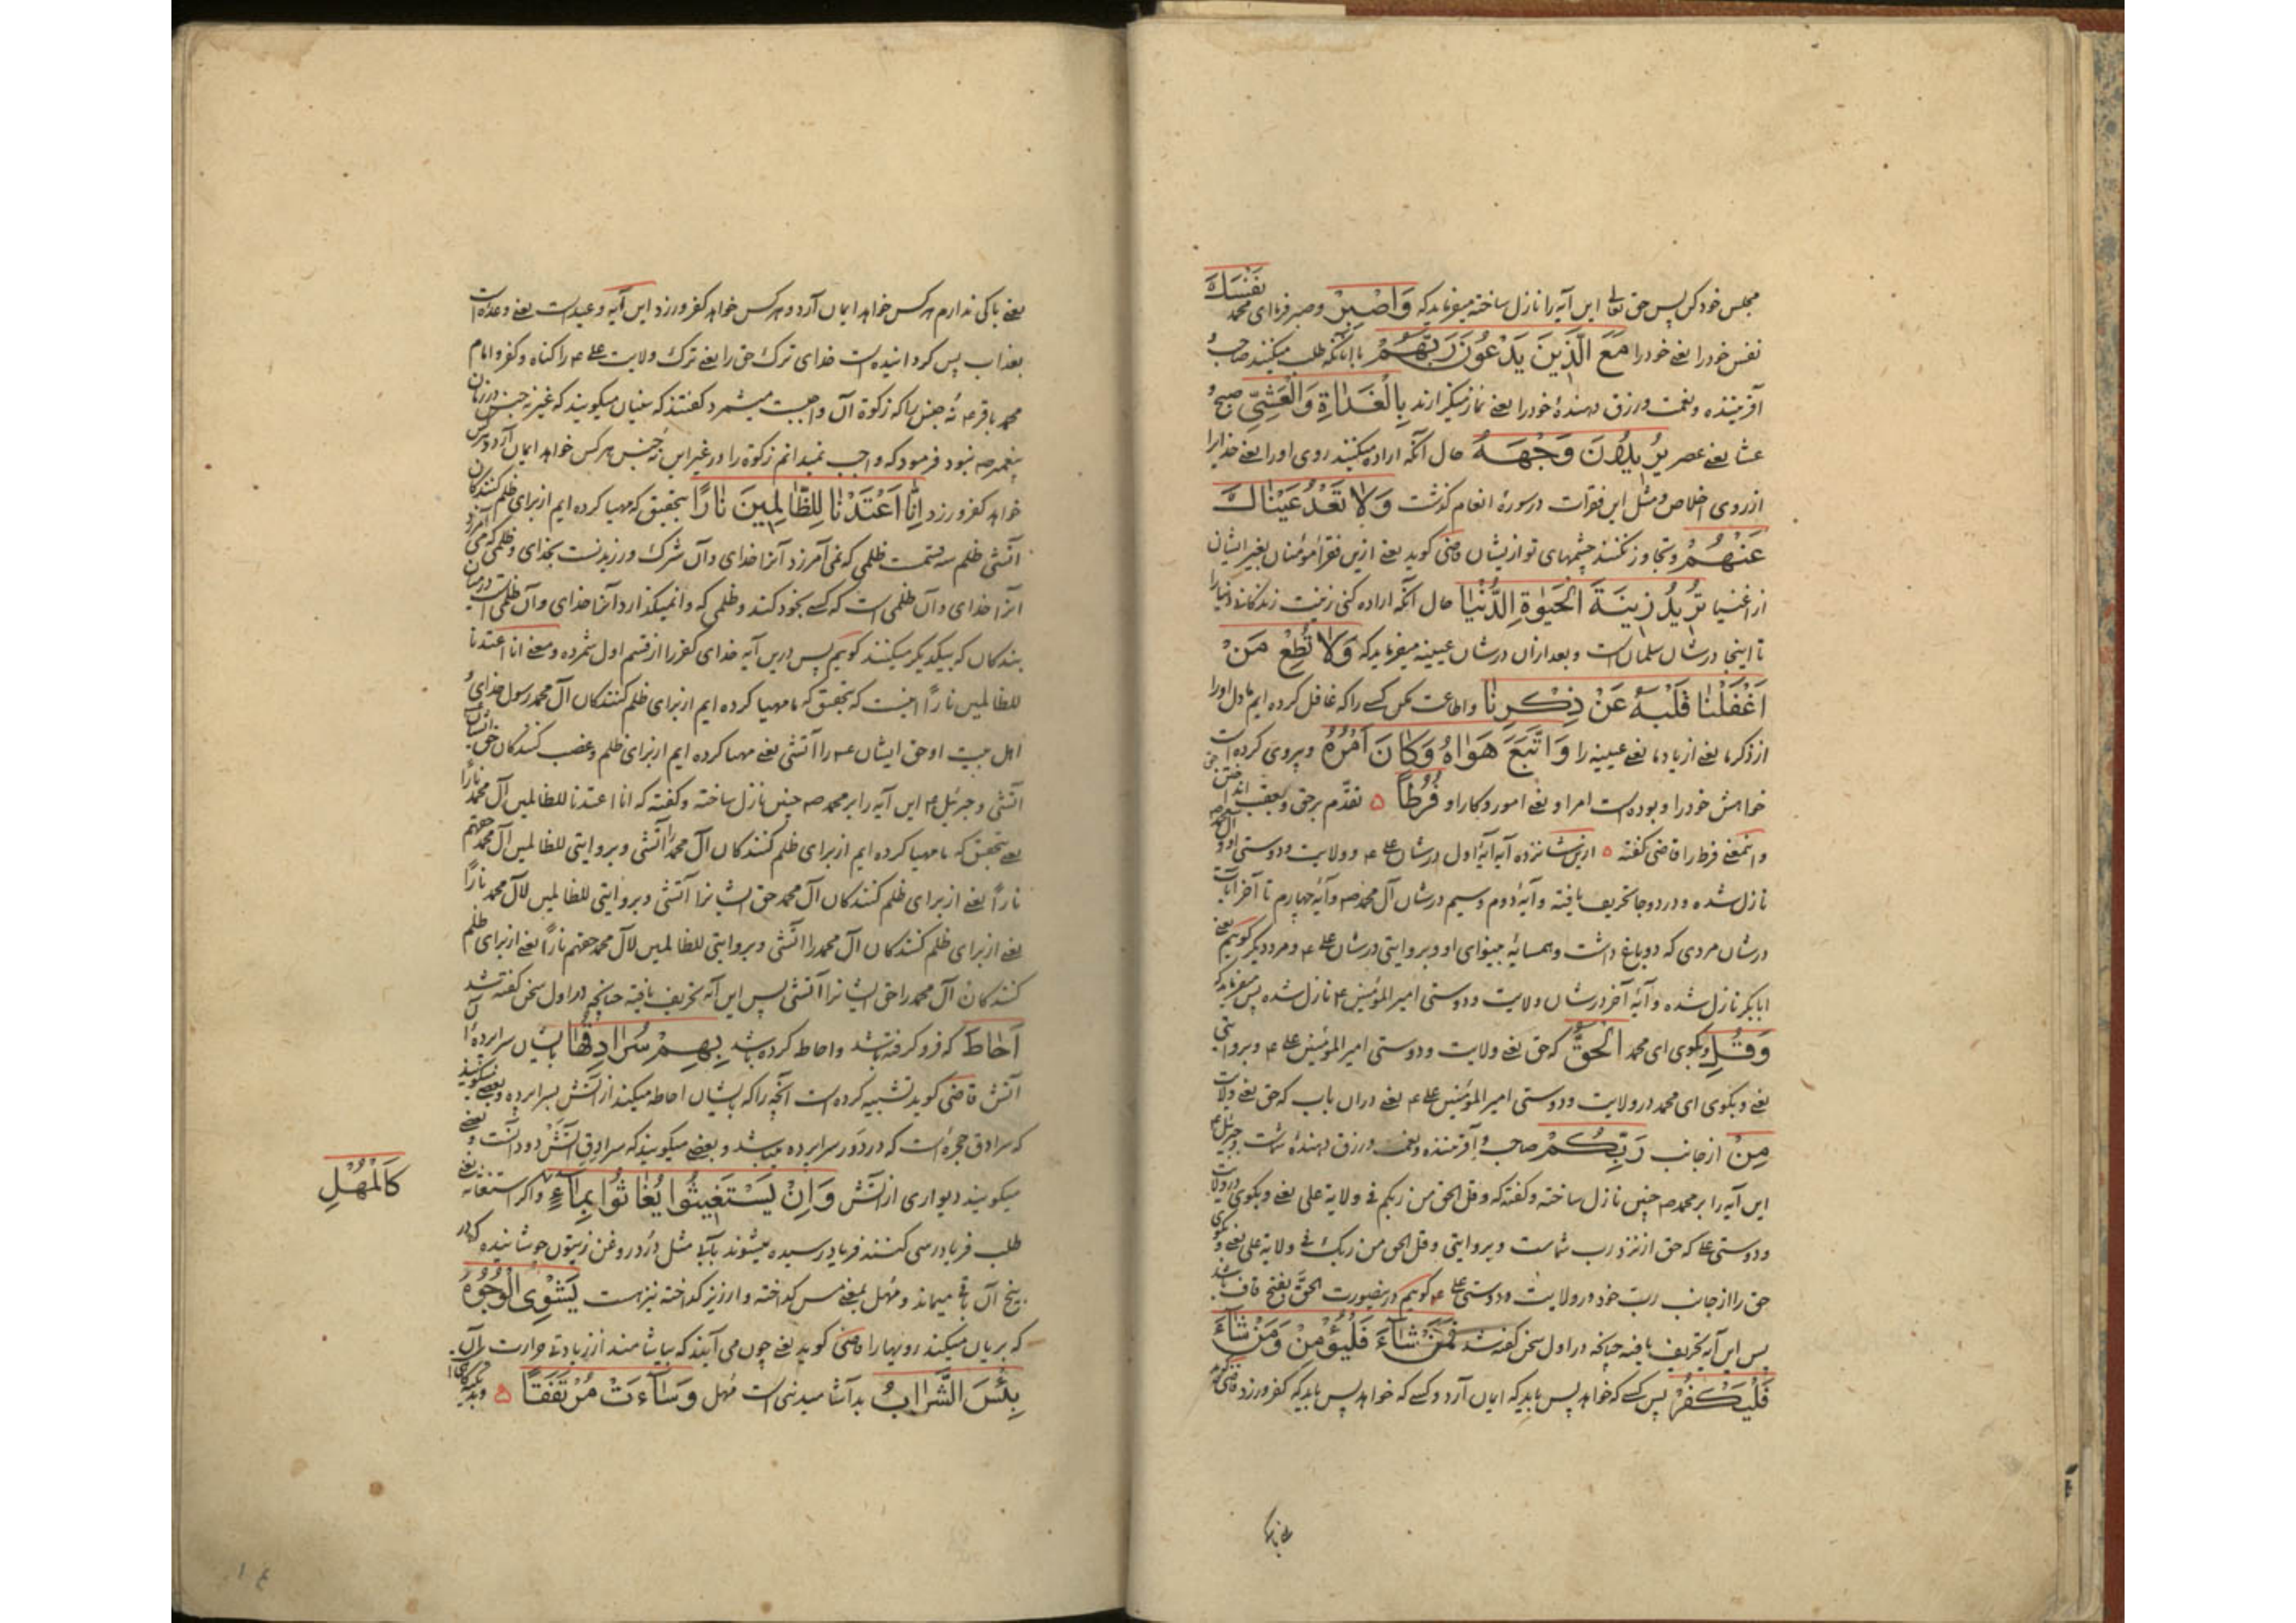 مجلس خود کن پس حق تعالی این آیه را نازل ساخته میفرماید که وَاصْبِرْ وصبر فرما ای محمد نَفْسَكَ
نفس خود را یعنی خود را مَعَ الَّذِينَ يَدْعُونَ رَبَّهُمْ با آنانکه طلب میکنند صاحب و
آفریننده و نعمت و رزق دهندهٔ خود را یعنی نماز میگزارند بِالْغَدَاةِ وَالْعَشِيِّ صبح و
عشا یعنی عصر يُرِيدُونَ وَجْهَهُ حال آنکه اراده میکنند روی او را یعنی خدایرا
از روی اخلاص و مثل این فقرات در سورهٔ انعام گذشت وَلَا تَعْدُ عَيْنَاكَ
عَنْهُمْ وتجاوز نکنند چشمهای تو از ایشان قاضی گوید یعنی ازین فقرا مؤمنان بغیر ایشان
از اغنیا تُرِيدُ زِينَةَ الْحَيٰوةِ الدُّنْيَا حال آنکه اراده کنی زینت زندگانی دنیا را
تا اینجا در شان سلمان است و بعد از آن در شان عیینه میفرماید که وَلَا تُطِعْ مَنْ
اَغْفَلْنَا قَلْبَهُ عَنْ ذِكْرِنَا واطاعت مکن کسی را که غافل کرده ایم ما دل او را
از ذکر ما یعنی از یاد ما یعنی عیینه را وَاتَّبَعَ هَوَاهُ وَكَانَ اَمْرُهُ وپیروی کرده است
خواهش خود را و بوده است امر او یعنی امور و کار او فُرُطًا ۵ تقدّم بر حق وبعقب انداختن حق
واینمعنی فرط را قاضی گفته ۵ ازین شانزده آیه آیهٔ اول در شان علی ع و ولایت و دوستی او و آل محمد ص
نازل شده و در دو جا تحریف یافته و آیهٔ دوم و سیم در شان آل محمد ص و آیهٔ چهارم تا آخر آیات
در شان مردی که دو باغ داشت و همسایهٔ بینوای او و بروایتی در شان علی ع و مرد دیگر گویم یعنی
ابابکر نازل شده و آیهٔ آخر در شان ولایت و دوستی امیر المؤمنین ع نازل شده پس میفرماید که
وَقُلِ وبگوی ای محمد الْحَقُّ که حق یعنی ولایت و دوستی امیر المؤمنین علی ع وبروایتی
یعنی وبگوی ای محمد در ولایت و دوستی امیر المؤمنین علی ع یعنی در آن باب که حق یعنی ولایت
مِنْ از جانب رَبِّكُمْ صاحب و آفریننده و نعمت و رزق دهندهٔ شماست وجبرئیل ع
این آیه را بر محمد ص چنین نازل ساخته و گفته که وقل الحق من ربکم فی ولایة علی یعنی وبگوی در ولایت
ودوستی علی که حق از نزد رب شماست وبروایتی وقل الحق من ربک فی ولایة علی یعنی وبگوی
حق را از جانب ربّ خود در ولایت و دوستی علی ع گویم در ینصورت الحقَّ بفتح قاف باشد
پس این آیه تحریف یافته چنانچه در اول سخن گفته شد فَمَنْ شَاءَ فَلْيُؤْمِنْ وَمَنْ شَاءَ
فَلْيَكْفُرْ پس کسی که خواهد پس باید که ایمان آرد و کسی که خواهد پس باید که کفر ورزد قاضی گوید
یعنی باکی ندارم هر کس خواهد ایمان آرد و هر کس خواهد کفر ورزد این آیه وعید است یعنی وعده است
بعذاب پس گردانیده است خدای ترک حق را یعنی ترک ولایت علی ع را گناه و کفر و امام
محمد باقر ع نُه جنس را که زکوة آن واجبست میشمرد گفتند که سنیان میگویند که غیر نه جنس در زمان
پیغمبر ص نبود فرمود که واجب نمیدانم زکوة را در غیر این نُه جنس هر کس خواهد ایمان آرد و هر کس
خواهد کفر ورزد اِنَّا اَعْتَدْنَا لِلظَّالِمِينَ نَارًا بتحقیق که مهیا کرده ایم از برای ظلم کنندگان
آتشی ظلم سه قسمت ظلمی که نمی آمرزد آنرا خدای وآن شرک ورزیدنست بخدای وظلمی که می آمرزد
آنرا خدای وآن ظلمی است که کسی بخود کند وظلمی که وانمیگذارد آنرا خدای وآن ظلمی است در میان
بندگان که بیکدیگر میکنند گویم پس درین آیه خدای کفر را از قسم اول شمرده و معنی انا اعتدنا
للظالمین نارًا اینست که بتحقیق که ما مهیا کرده ایم از برای ظلم کنندگان آل محمد رسول خدای و
اهل بیت او حق ایشان ع را آتشی یعنی مهیا کرده ایم از برای ظلم و غصب کنندگان حق ایشان
آتشی وجبرئیل ع این آیه را بر محمد ص چنین نازل ساخته و گفته که انا اعتدنا للظالمین آل محمد نارًا
یعنی بتحقیق که ما مهیا کرده ایم از برای ظلم کنندگان آل محمد را آتشی وبروایتی للظالمین آل محمد حقهم
نارًا یعنی از برای ظلم کنندگان آل محمد حق ایشانرا آتشی وبروایتی للظالمین لآل محمد نارًا
یعنی از برای ظلم کنندگان آل محمد را آتشی وبروایتی للظالمین لآل محمد حقهم نارًا یعنی از برای ظلم
کنندگان آل محمد را حق ایشانرا آتشی پس این آیه تحریف یافته چنانچه در اول سخن گفته شد
اَحَاطَ که فرو گرفته باشد واحاطه کرده باشد بِهِمْ سُرَادِقُهَا بایشان سراپردهٔ آن
آتش قاضی گوید تشبیه کرده است آنچه را که بایشان احاطه میکند از آتش بسراپرده وبعضی میگویند
که سرادق حجره است که در دَور سراپرده میباشد وبعضی میگویند که سرادق آتش دود آنست وبعضی
میگویند دیواری از آتش وَاِنْ يَسْتَغِيثُوا يُغَاثُوا بِمَاءٍ واگر استغاثه یعنی
كَالْمُهْلِ
طلب فریادرسی کنند فریاد رسیده میشوند بآبی مثل دُرد روغن زیتون جوشانیده که در
بیخ آن باقی میماند ومُهل بمعنی مس گداخته وارزیز گداخته نیز هست يَشْوِي الْوُجُوهَ
که بریان میکند رویها را قاضی گوید یعنی چون می آیند که بیاشامند از زیادتی حرارت آن
بِئْسَ الشَّرَابُ بد آشامیدنی است مُهل وَسَاءَتْ مُرْتَفَقًا ۵